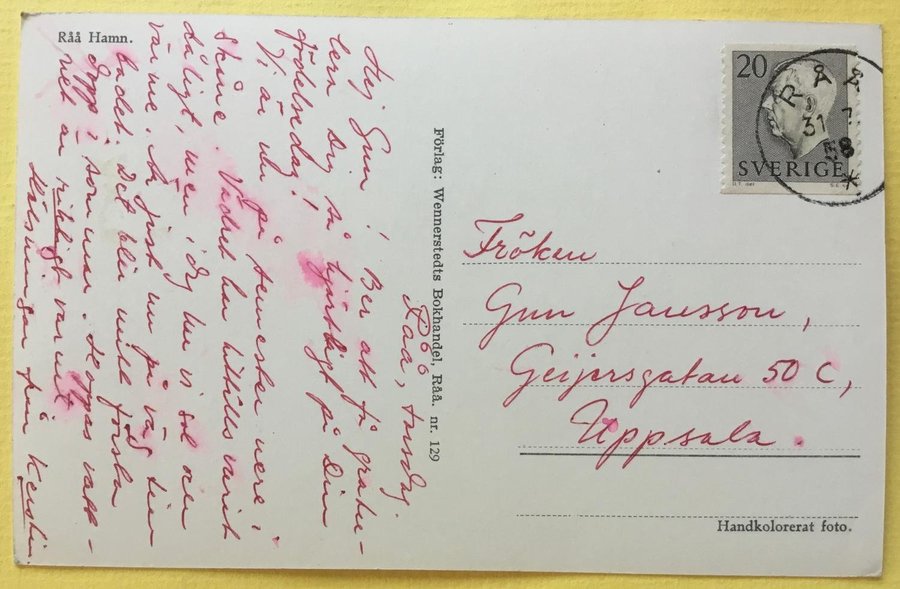 Råå Hamn.
Råå, torsdag.
Hej Gun! Ber att få gratu-
lera Dig så hjärtligt på Din
födelsedag!
Vi är nu på semester nere i
Skåne. Vädret har hittills varit
dåligt, men idag har vi sol och
värme. Är just nu på väg till
badet. Det blir mitt första
dopp i sommar. Hoppas vatt-
net är riktigt varmt.
Hälsningar från Kerstin
Förlag: Wennerstedts Bokhandel, Råå. nr. 129
20
SVERIGE
RÅÅ
31
58
Fröken
Gun Jansson,
Geijersgatan 50 C,
Uppsala.
Handkolorerat foto.